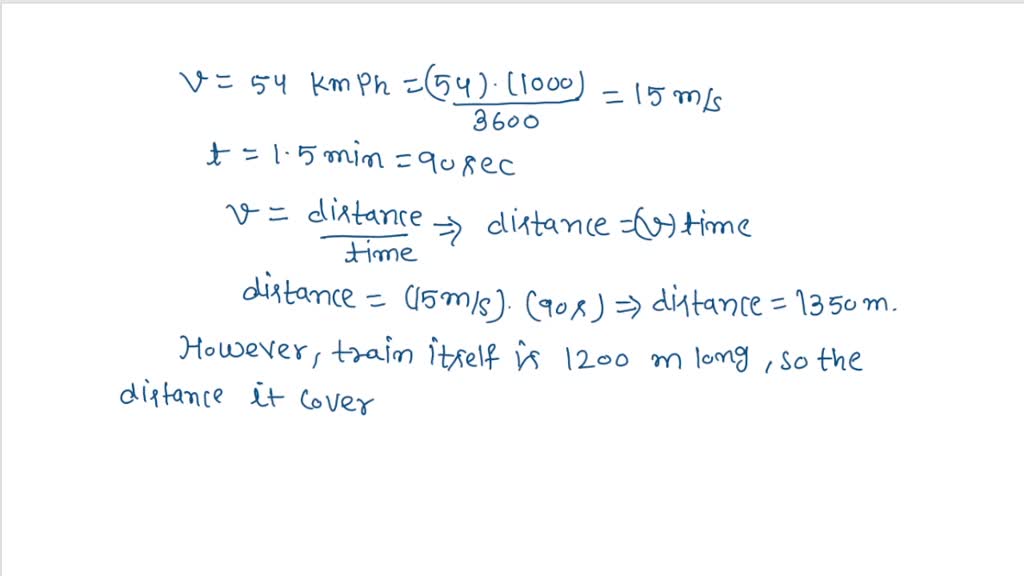 v = 54 KmPh = (54).(1000) / 3600 = 15 m/s
t = 1.5 min = 90 sec
v = distance / time ⇒ distance = (v) time
distance = (15m/s). (90s) ⇒ distance = 1350 m.
However, train itself is 1200 m long, so the
distance it cover